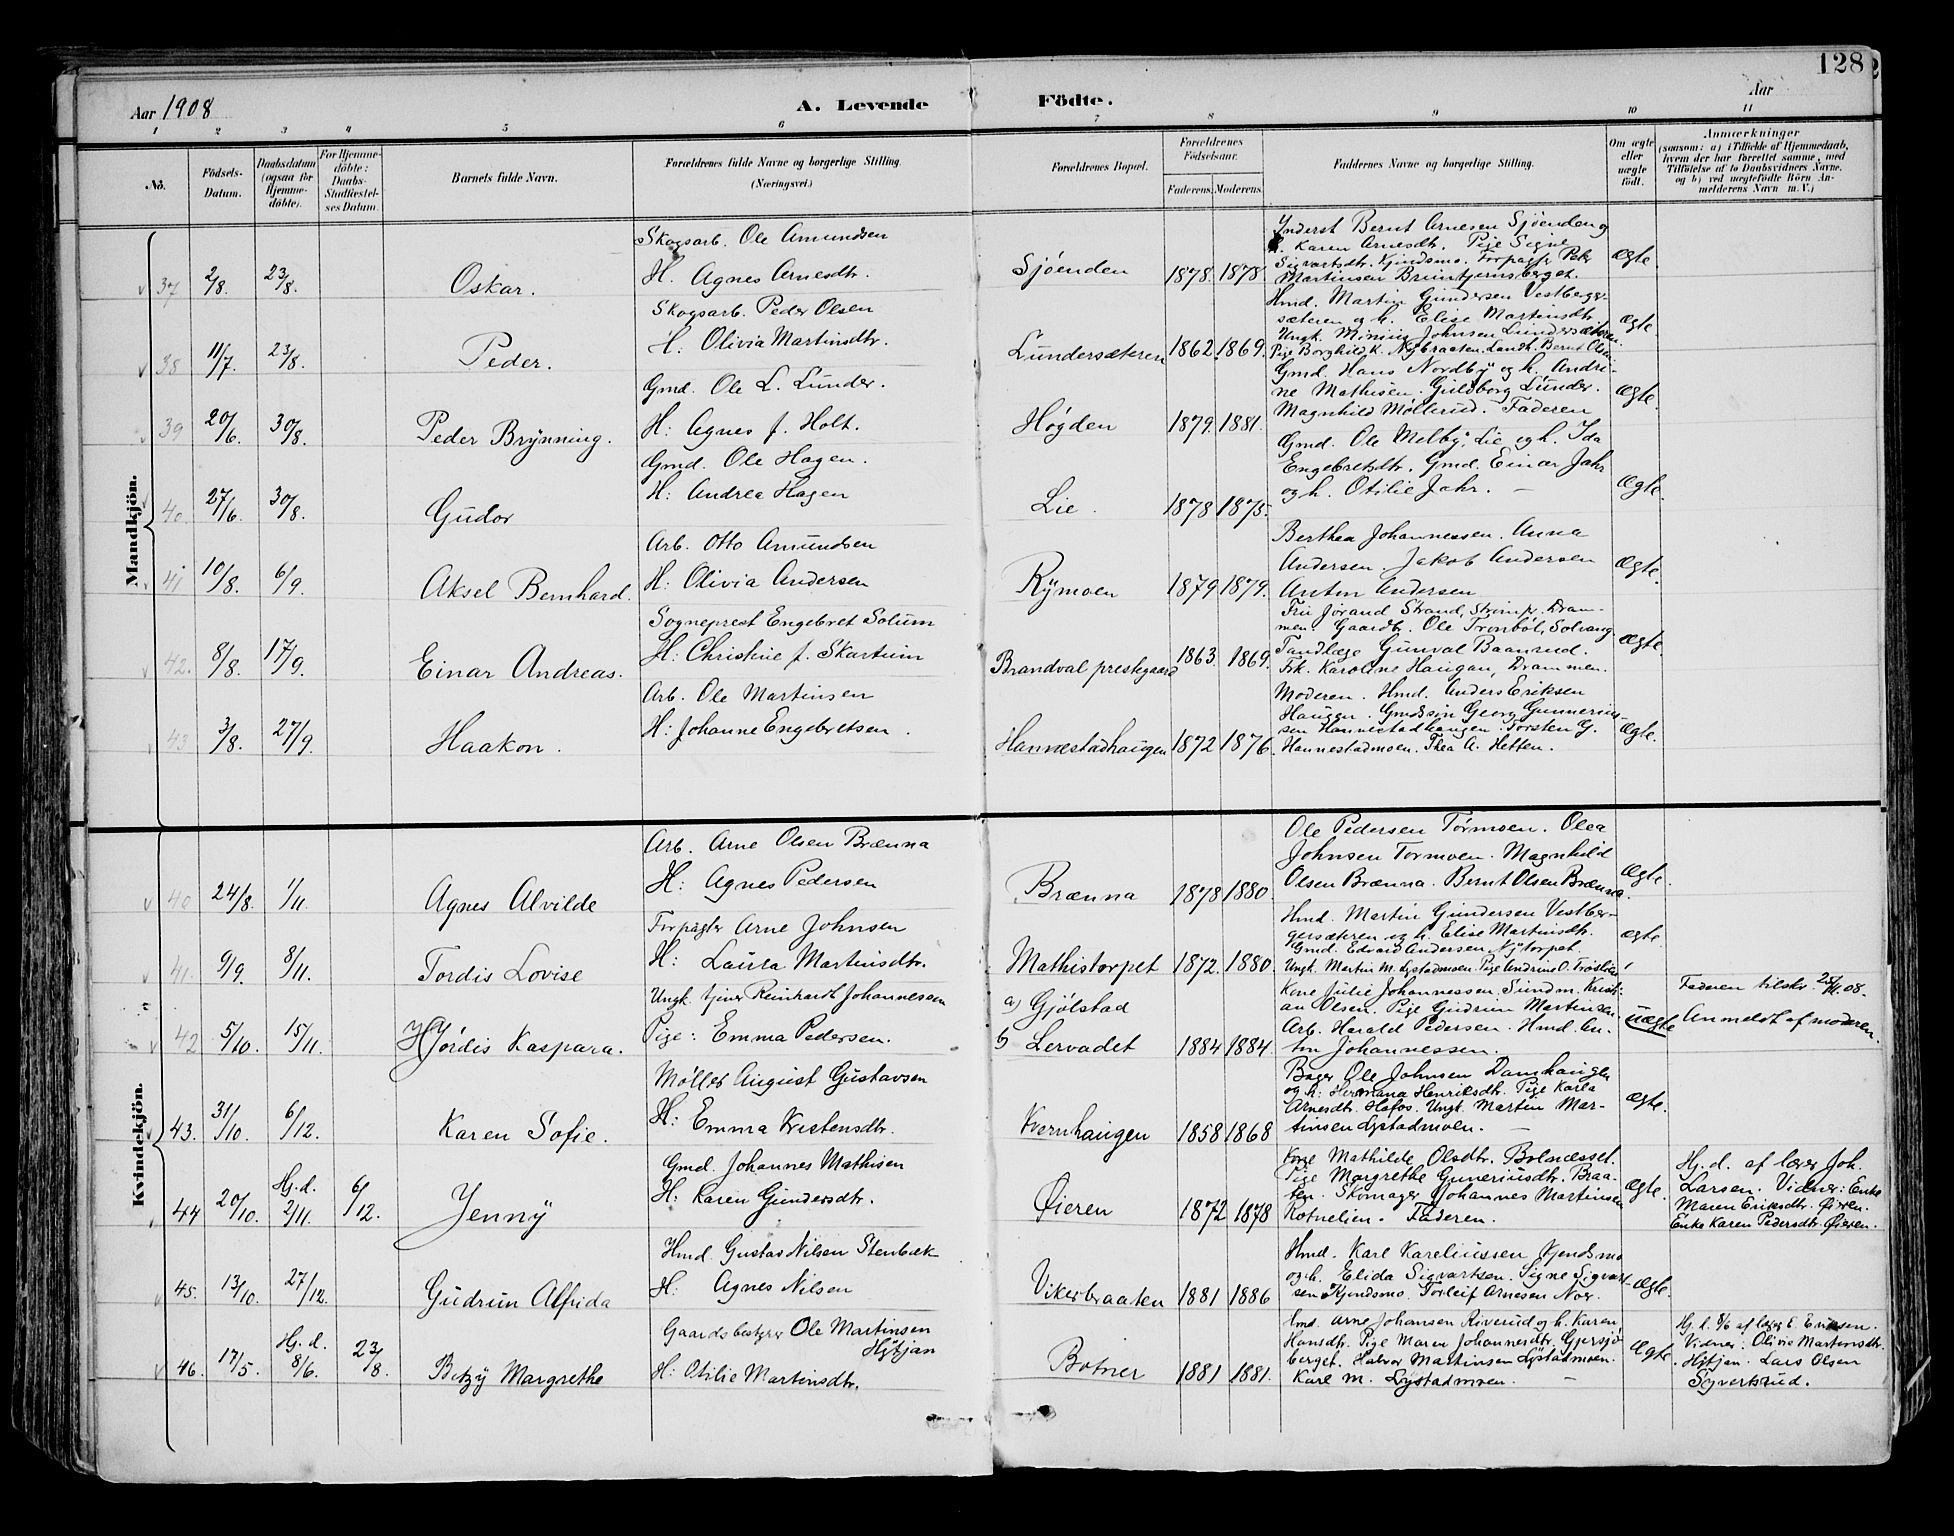 128
Aar 1908
A. Levende
Födte.
Aar
1 2 3 4 5 6 7 8 9 10 11
No.
Födsels-Datum.
Daabsdatum (ogsaa for Hjemme-döbte).
For Hjemme-döbte: Daabs-Stadfæstel-ses Datum.
Barnets fulde Navn.
Forældrenes fulde Navne og borgerlige Stilling. (Næringsvei.)
Forældrenes Bopæl.
Forældrenes Födselsaar.
Faderens. Moderens.
Faddernes Navne og borgerlige Stilling.
Om ægte eller uægte födt.
Anmærkninger
(saasom: a) i Tilfælde af Hjemmedaab, hvem der har forrettet samme, med Tilföielse af to Daabsvidners Navne, og b) ved uægtefödte Börn An-melderens Navn m. V.)
Mandkjön.
37 2/8. 23/8. Oskar.
Skogsarb. Ole Amundsen
H. Agnes Arnesdtr.
Sjøenden 1878. 1878
Inderst Bernt Arnesen Sjøenden og
h. Karen Arnesdt. Pige Signe
Sigvartsdtr. Kjindsmo. Forpagtr. Peter
Martinsen Bruntjernsberget.
Ægte
38 11/7. 23/8. Peder.
Skogsarb. Peder Olsen
H: Olivia Martinsdtr.
Lundersæteren 1862. 1869.
Hmd. Martin Gundersen Vestberg-
sæteren og h. Elise Martinsdtr.
Ungk. Johnsen Lundersæteren.
Pige Borghild K. Nybraaten. Landh. Bernt Olsen
ægte.
39 20/6. 30/8. Peder Brynning.
Gmd. Ole L. Lunder.
H: Agnes f. Holt.
Høgden 1879. 1881.
Gmd. Hans Nordby og h. Andri-
ne Mathisen. Guldborg Lunder.
Magnhild Møllerud. Faderen
Ægte.
40 27/6. 30/8. Gudor
Gmd. Ole Hagen.
H: Andrea Hagen
Lie. 1878 1875.
Gmd. Ole Melby, Lie og h. Ida
Engebretsdtr. Gmd. Einar Jahr
og h. Otilie Jahr. —
Ægte.
41 10/8. 6/9. Aksel Bernhard.
Arb. Otto Amundsen
H: Olivia Andersen
Rymoen 1879 1879.
Berthea Johannessen. Anna
Andersen. Jakob Andersen
Anton Andersen
Ægte.
42. 8/8. 17/9. Einar Andreas.
Sogneprest Engebret Solum
H: Christine f. Skartum
Brandval prestegaard 1863. 1869.
Fru Jørand Strand, Strømp. Dram-
men. Gaardbr. Ole Tronbøl, Solvang
Tandlæge Gunval Baanrud.
Frk. Karoline Haugan, Drammen.
Ægte.
43 3/8. 27/9. Haakon.
Arb. Ole Martinsen
H: Johanne Engebretsen.
Hannestadhaugen 1872 1876.
Moderen. Hmd. Anders Eriksen
Haugen. Gmdssøn Georg Gunnerius-
sen Hannestadhaugen. Torsten G.
Hannestadmoen. Thea A. Hetten.
Ægte.
Kvindekjön.
40 24/8. 1/11. Agnes Alvilde
Arb. Arne Olsen Brænna
H: Agnes Pedersen
Brænna 1878 1880.
Ole Pedersen Tormoen. Olea
Johnsen Tormoen. Magnhild
Olsen Brænna. Bernt Olsen Brænna.
Ægte.
41. 9/9. 8/11. Tordis Lovise
Forpagter Arne Johnsen
H: Laura Martinsdtr.
Mathistorpet 1872. 1880.
Hmd. Martin Gundersen Vestber-
gersæteren og h. Elise Martinsdtr.
Gmd. Edvard Andersen Nytorpet.
Ungk. Martin M. Lystadmoen. Pige Andrine O.
ægte.
42 5/10. 15/11. Hjørdis Kaspara.
Ungk. tjener Reinhardt Johannessen
Pige: Emma Pedersen.
a) Gjølstad
b) Lervadet 1884 1884.
Kone Julie Johannessen. Sundm. Kristi-
an Olsen. Pige Gudrun Martinsen.
Arb. Harald Pedersen. Hmd. An-
ton Johannessen.
uægte
Faderen tilskr. 25/11. 08.
Anmeldt af moderen.
43. 31/10. 6/12. Karen Sofie.
Møller August Gustavsen
H: Emma Kristensdtr.
Kvernhaugen 1858 1868
Bager Ole Johnsen Damhaugen
og h: Hermana Henriksdtr. Pige Karla
Arnesdtr. Hafos. Ungk. Martin Mar-
tinsen Lystadmoen. —
ægte.
44 20/10. Hj.d. 2/11. 6/12. Jenny
Gmd. Johannes Mathisen
H: Karen Gundersdtr.
Øieren 1872 1878
Kone Mathilde Olsdtr. Bolnæsset.
Pige Margrethe Guneriusdtr. Braa-
ten. Skomager Johannes Martinsen
Rotnelien. Faderen.
Ægte.
Hj.d. af lærer Joh.
Larsen. Vidner: Enke
Maren Eriksdtr. Øieren.
Enke Karen Pedersdtr. Øieren.
45. 13/10. 27/12. Gudrun Alfrida
Hmd. Gustav Nilsen Stenbæk
H: Agnes Nilsen
Vikerbraaten 1881 1886
Hmd. Karl Kareliussen Kjendsmo
og h. Elida Sigvartsen. Signe Sigvart-
sen Kjendsmo. Torleif Arnesen Nor.
Ægte.
46. 17/5. Hj.d. 8/6. 23/8. Betzy Margrethe
Gaardsbestyrer Ole Martinsen
Høtjan
H: Otilie Martinsdtr.
Botner 1881 1881.
Hmd. Arne Johansen Riverud og h. Karen
Hansdtr. Pige Maren Johannesdtr. Gjersjø-
berget. Halvor Martinsen Lystadmoen.
Karl M. Lystadmoen. —
Ægte.
Hj. d. 8/6 af lærer E. Eriksen.
Vidner: Olivie Martinsdtr.
Høtjan. Lars Olsen
Syvertsrud.